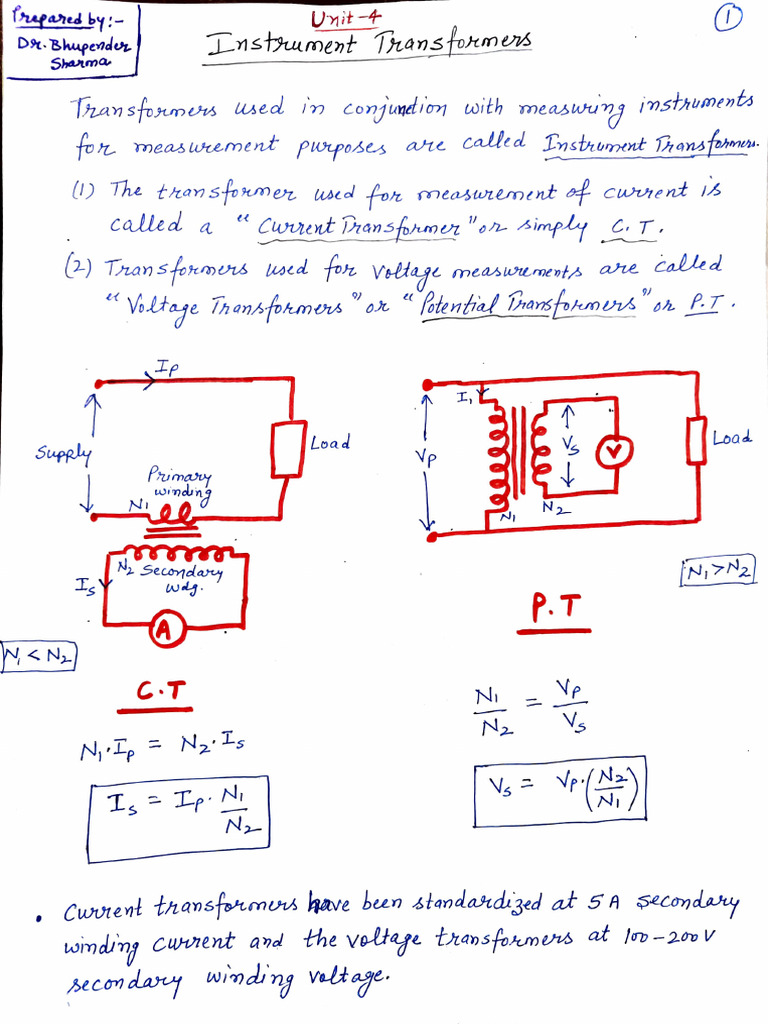 Prepared by:-
Dr. Bhupender
Sharma
Unit-4
1
Instrument Transformers
Transformers used in conjunction with measuring instruments
for measurement purposes are called Instrument Transformers.
(1) The transformer used for measurement of current is
called a "Current Transformer" or simply C.T.
(2) Transformers used for voltage measurements are called
"Voltage Transformers" or "Potential Transformers" or P.T.
Ip
Supply
Load
Primary
winding
N1
N2 Secondary
wdg.
Is
A
N1 < N2
C.T
N1.Ip = N2.Is
Is = Ip. N1/N2
I1
Vp
Vs
V
Load
N1
N2
N1 > N2
P.T
N1/N2 = Vp/Vs
Vs = Vp.(N2/N1)
• Current transformers have been standardized at 5A secondary
winding current and the voltage transformers at 100-200V
secondary winding voltage.